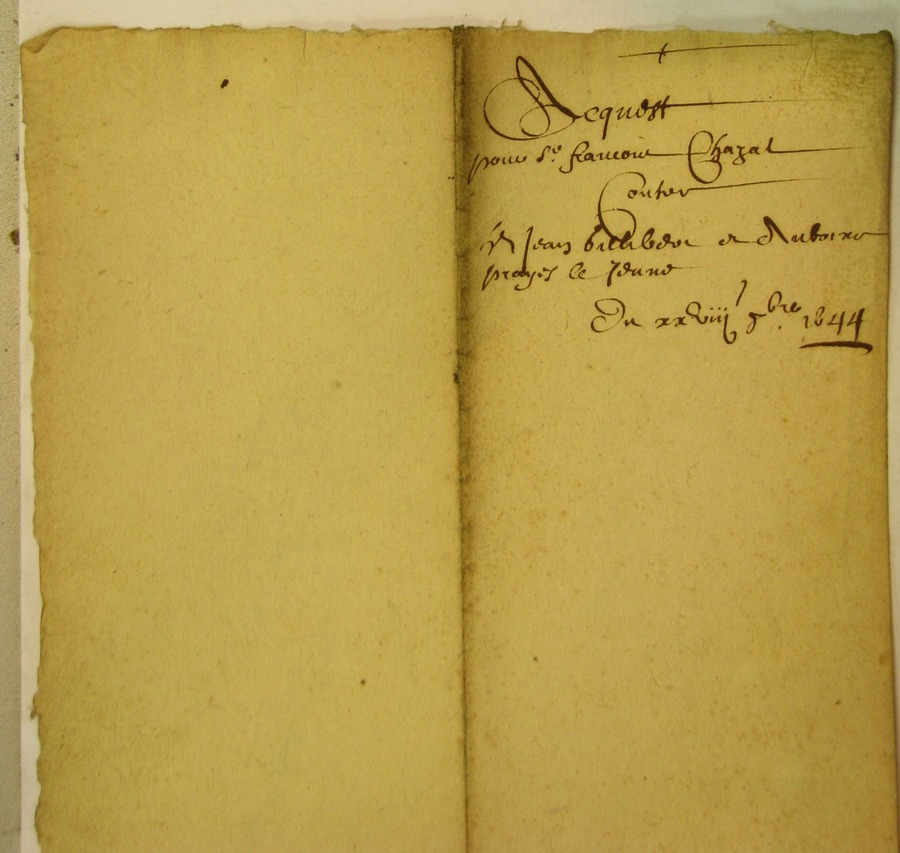 Requeste
pour Sr francois Chazal
Contre
Me Jean billibert et Anthoine
prages le Jeune
Du xxviii 9bre 1644